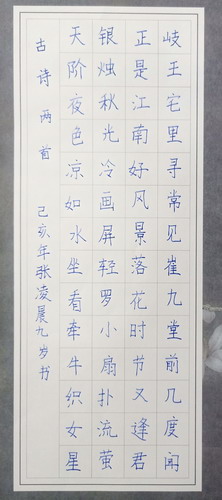 岐王宅里寻常见崔九堂前几度闻
正是江南好风景落花时节又逢君
银烛秋光冷画屏轻罗小扇扑流萤
天阶夜色凉如水坐看牵牛织女星
古诗两首 己亥年张凌展九岁书